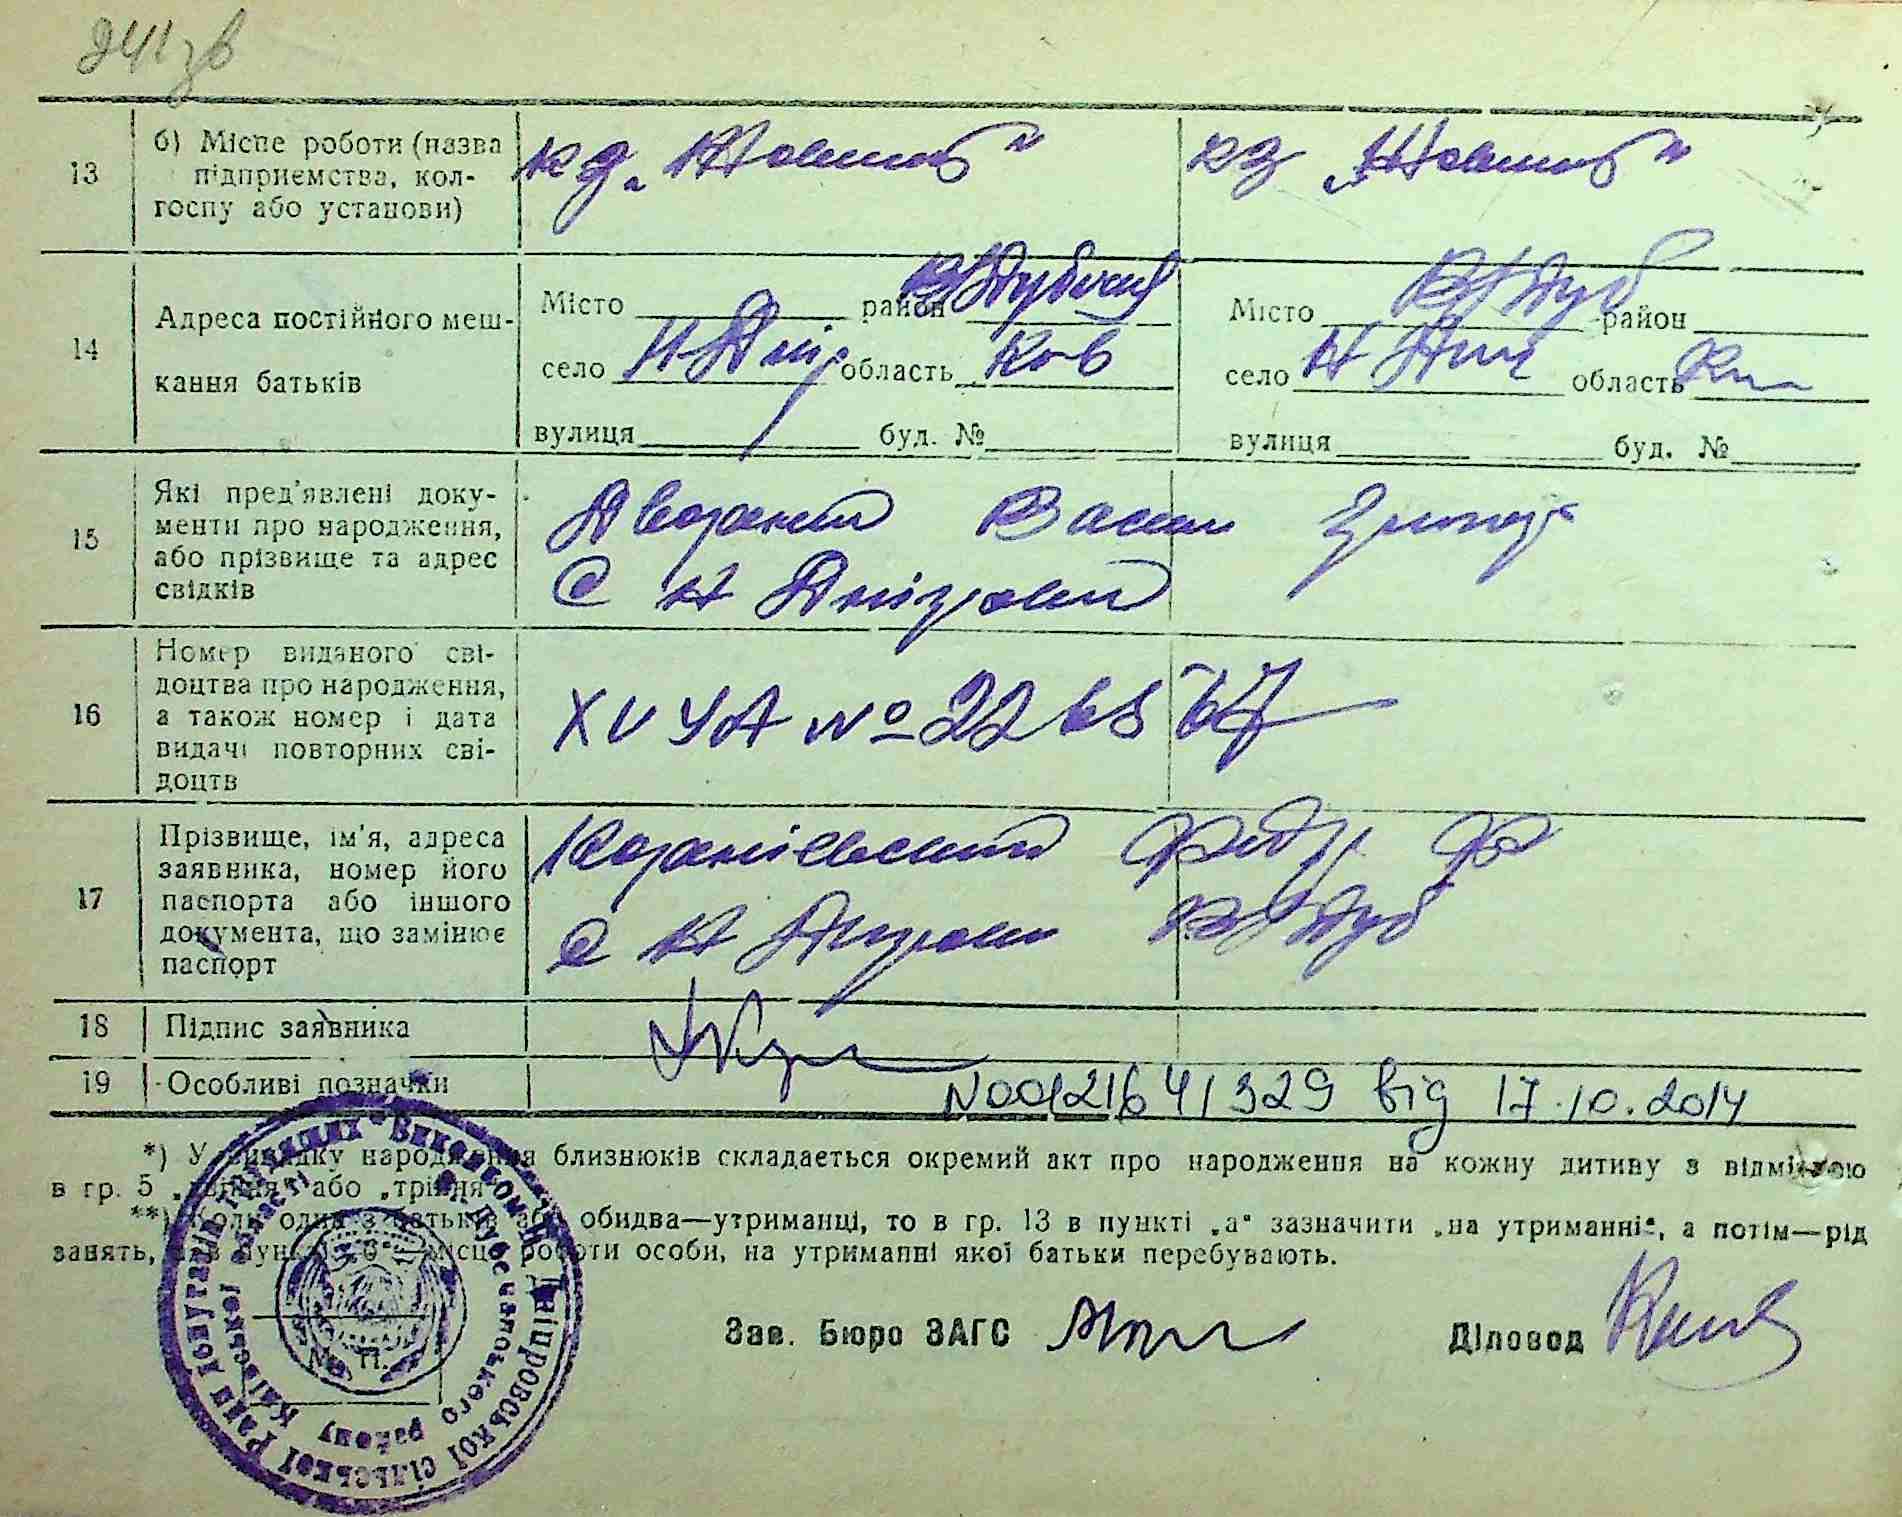 241зв
13
б) Місце роботи (назва
підприємства, кол-
госпу або установи)
14
Адреса постійного меш-
кання батьків
Місто район
село Н Дніп область Киів
вулиця буд. №
Місто В Дуб район
село Н Дніп область
вулиця буд. №
15
Які пред'явлені доку-
менти про народження,
або прізвище та адрес
свідків
С Н Дніпровий
16
Номер виданого сві-
доцтва про народження,
а також номер і дата
видачі повторних сві-
доцтв
XV УА №
17
Прізвище, ім'я, адреса
заявника, номер його
паспорта або іншого
документа, що замінює
паспорт
С Н В Дуб
18
Підпис заявника
19
Особливі позначки
N00121641329 від 17.10.2014
*) У випадку народження близнюків складається окремий акт про народження на кожну дитину з відміткою
в гр. 5 „двійня“ або „трійня“
**) Коли один з батьків або обидва—утриманці, то в гр. 13 в пункті „а“ зазначити „на утриманні“, а потім—рід
занять, а в пункті „б“—місце роботи особи, на утриманні якої батьки перебувають.
Зав. Бюро ЗАГС
Діловод
М. П.
Виконком Н Дніпровської сільської Ради депутатів трудящих
В Дубечанського району Київської області